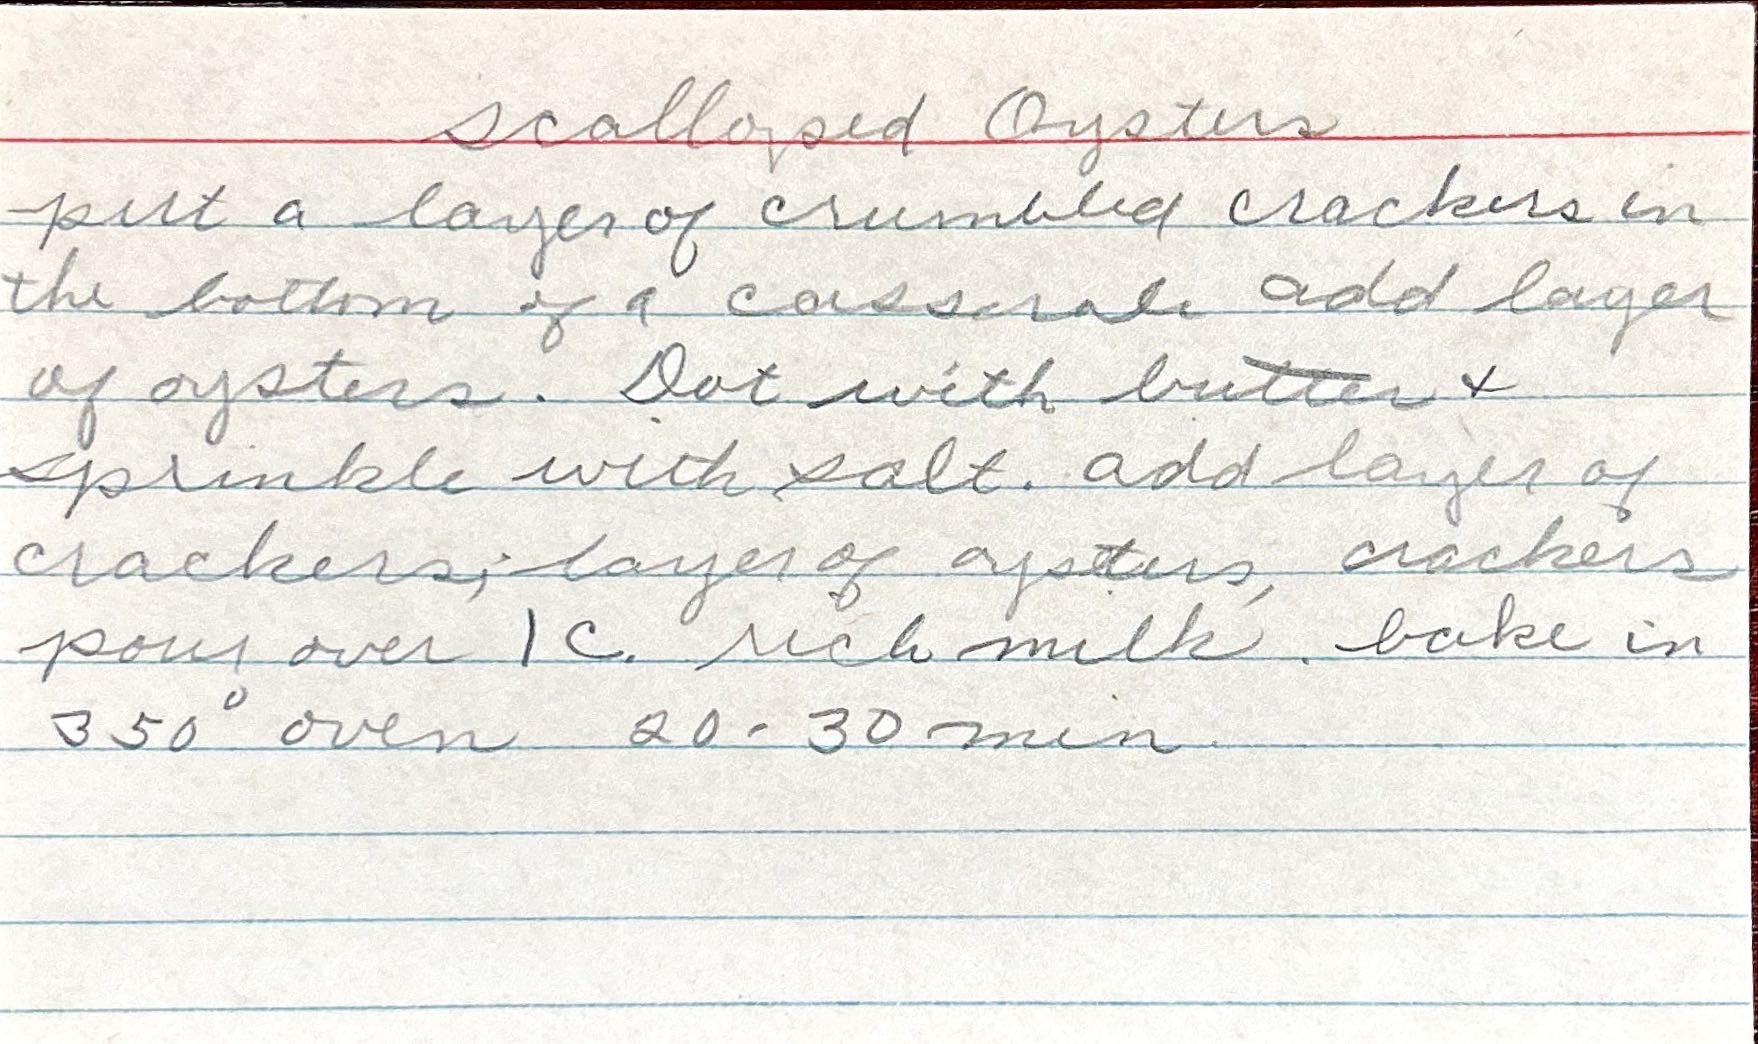 Scalloped Oysters
put a layer of crumbled crackers in
the bottom of a casserole add layer
of oysters. Dot with butter &
sprinkle with salt. add layer of
crackers; layer of oysters, crackers
pour over 1 C. rich milk. bake in
350° oven 20-30 min.